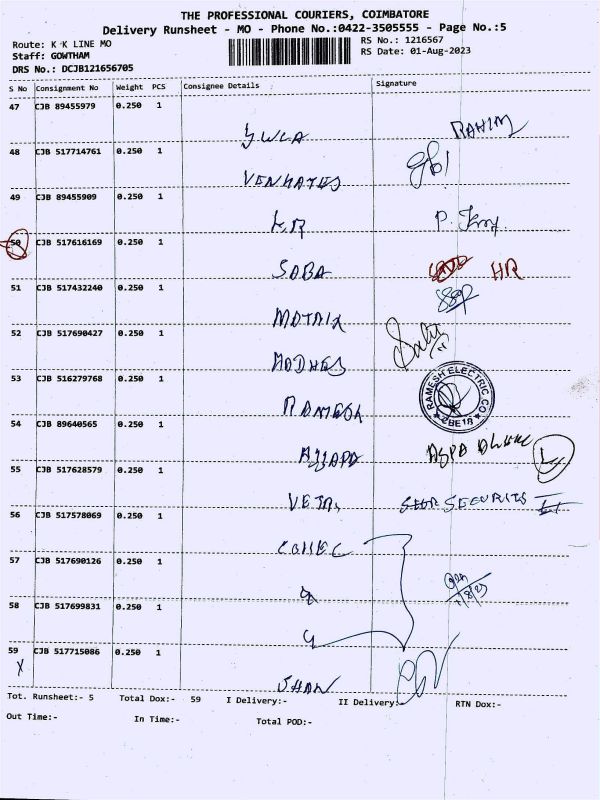 THE PROFESSIONAL COURIERS, COIMBATORE
Delivery Runsheet - MO - Phone No.:0422-3505555 - Page No.:5
Route: K K LINE MO
RS No.: 1216567
Staff: GOWTHAM
RS Date: 01-Aug-2023
DRS No.: DCJB121656705
S No Consignment No Weight PCS Consignee Details Signature
47 CJB 89455979 0.250 1
RAHIM
48 CJB 517714761 0.250 1
VENKATES
49 CJB 89455909 0.250 1
K.R P.
50 CJB 517616169 0.250 1
SABA HR
51 CJB 517432240 0.250 1
MATRIX
52 CJB 517690427 0.250 1
MADHES
53 CJB 516279768 0.250 1
RAMESH
RAMESH ELECTRIC CO
CBE18
54 CJB 89640565 0.250 1
55 CJB 517628579 0.250 1
SECURITS
56 CJB 517578069 0.250 1
COLLEC
57 CJB 517690126 0.250 1
1/8/23
58 CJB 517699831 0.250 1
59 CJB 517715086 0.250 1
X
SHAN
Tot. Runsheet:- 5 Total Dox:- 59 I Delivery:- II Delivery:- RTN Dox:-
Out Time:- In Time:- Total POD:-